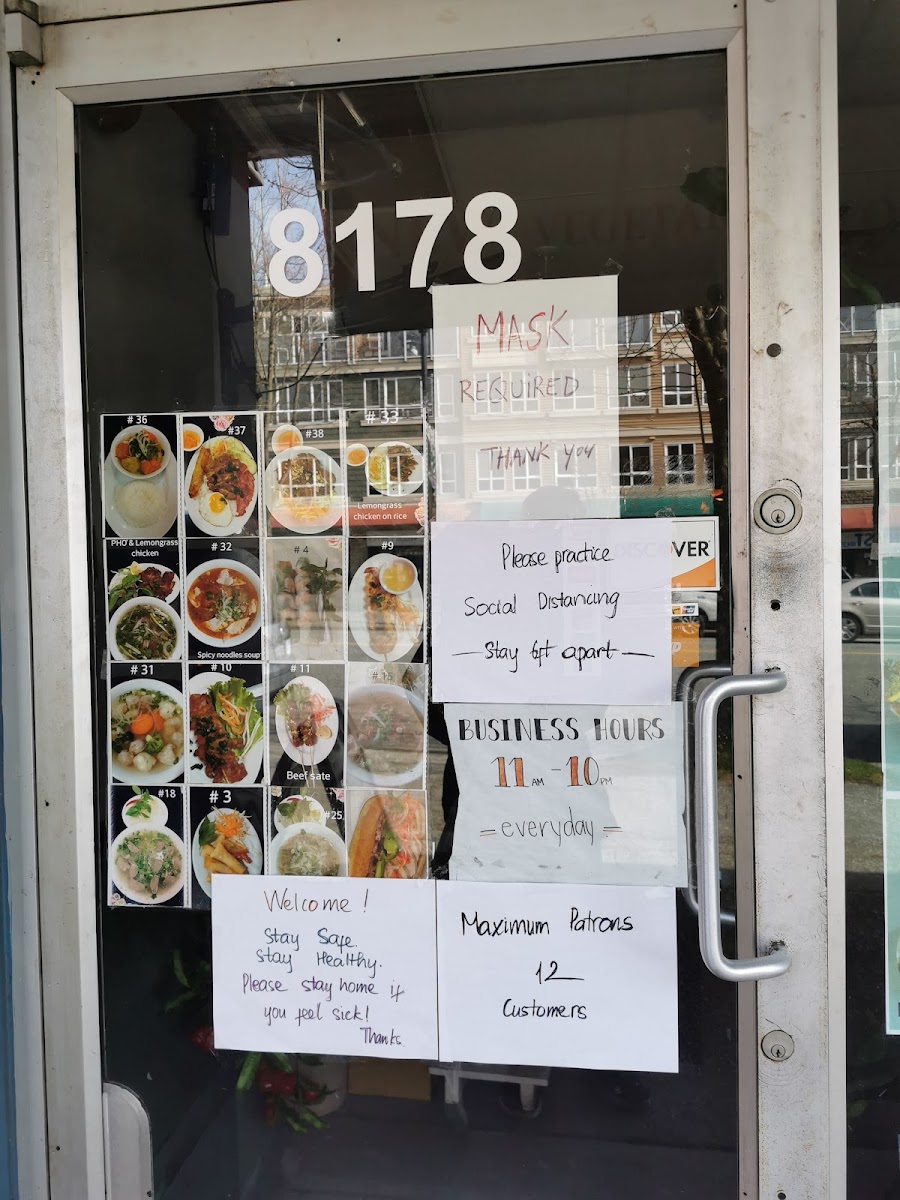 8178
MASK
REQUIRED
THANK YOU
# 36
#37
#38
# 33
Lemongrass
chicken on rice
PHO & Lemongrass
chicken
# 32
Spicy noodles soup
# 4
#9
# 31
# 10
# 11
Beef sate
#18
# 3
#25
DISCOVER
Please practice
Social Distancing
Stay 6ft apart
BUSINESS HOURS
11 AM - 10 PM
= everyday =
Welcome!
Stay Safe.
Stay Healthy.
Please stay home if
you feel sick!
Thanks.
Maximum Patrons
12
Customers